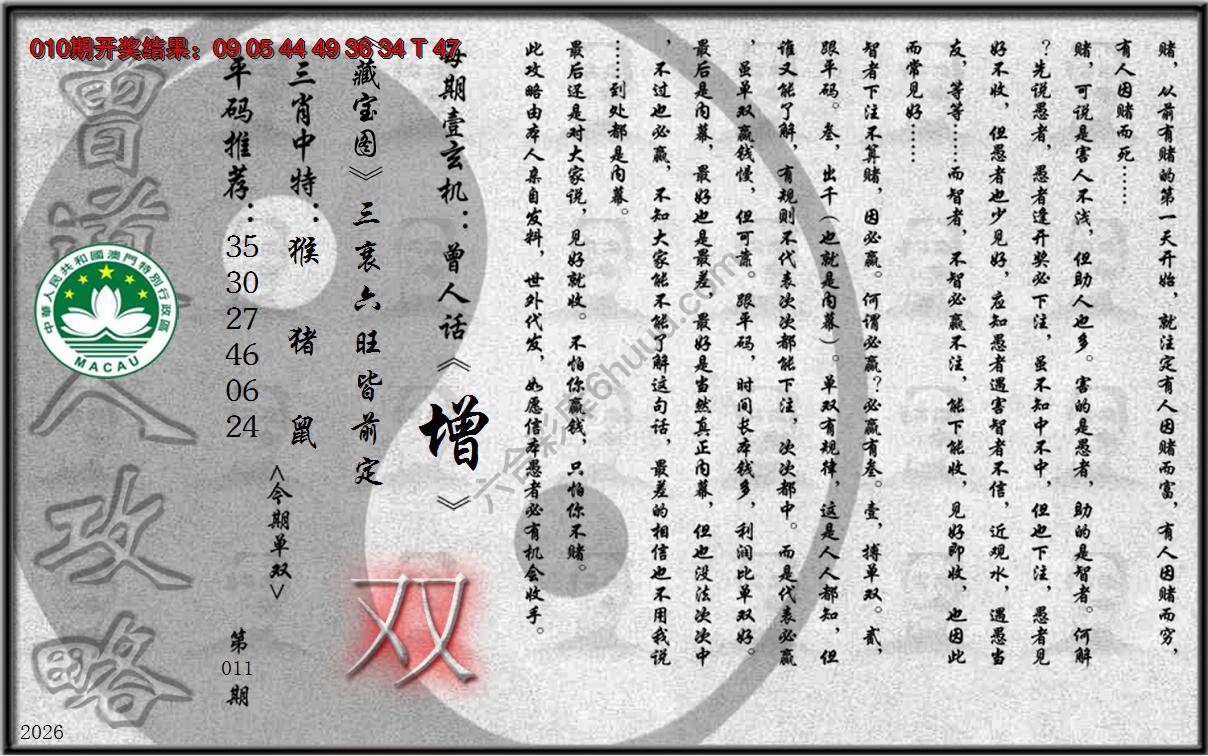 010期开奖结果：09 05 44 49 36 34 T 47
赌，从前有赌的第一天开始，就注定有人因赌而富，有人因赌而穷，
有人因赌而死……
赌，可说是害人不浅，但助人也多。害的是愚者，助的是智者。何解
？先说愚者，愚者逢开奖必下注，虽不知中不中，但也下注，愚者见
好不收，但愚者也少见好，应知愚者遇害智者不信，近观水，遇愚当
友，等等……而智者，不智必赢不注，能下能收，见好即收，也因此
而常见好……
智者下注不算赌，因必赢。何谓必赢？必赢有叁。壹，搏单双。贰，
跟平码。叁，出千（也就是内幕）。单双有规律，这是人人都知，但
谁又能了解，有规则不代表次次都能下注，次次都中。而是代表必赢
，虽单双赢钱慢，但可靠。跟平码，时间长本钱多，利润比单双好。
最后是内幕，最好也是最差，最好是当然真正内幕，但也没法次次中
，不过也必赢，不知大家能不能了解这句话，最差的相信也不用我说
……到处都是内幕。
最后还是对大家说，见好就收。不怕你赢钱，只怕你不赌。
此攻略由本人亲自发料，世外代发，如愿信本愚者必有机会收手。
每期壹玄机：曾人话《增》
《藏宝图》三衰六旺皆前定
双
三肖中特：猴 猪 鼠
<今期单双>
平码推荐：35 30 27 46 06 24
第011期
曾道人攻略
中華人民共和國澳門特別行政區
MACAU
六合彩库6huuu.com
2026